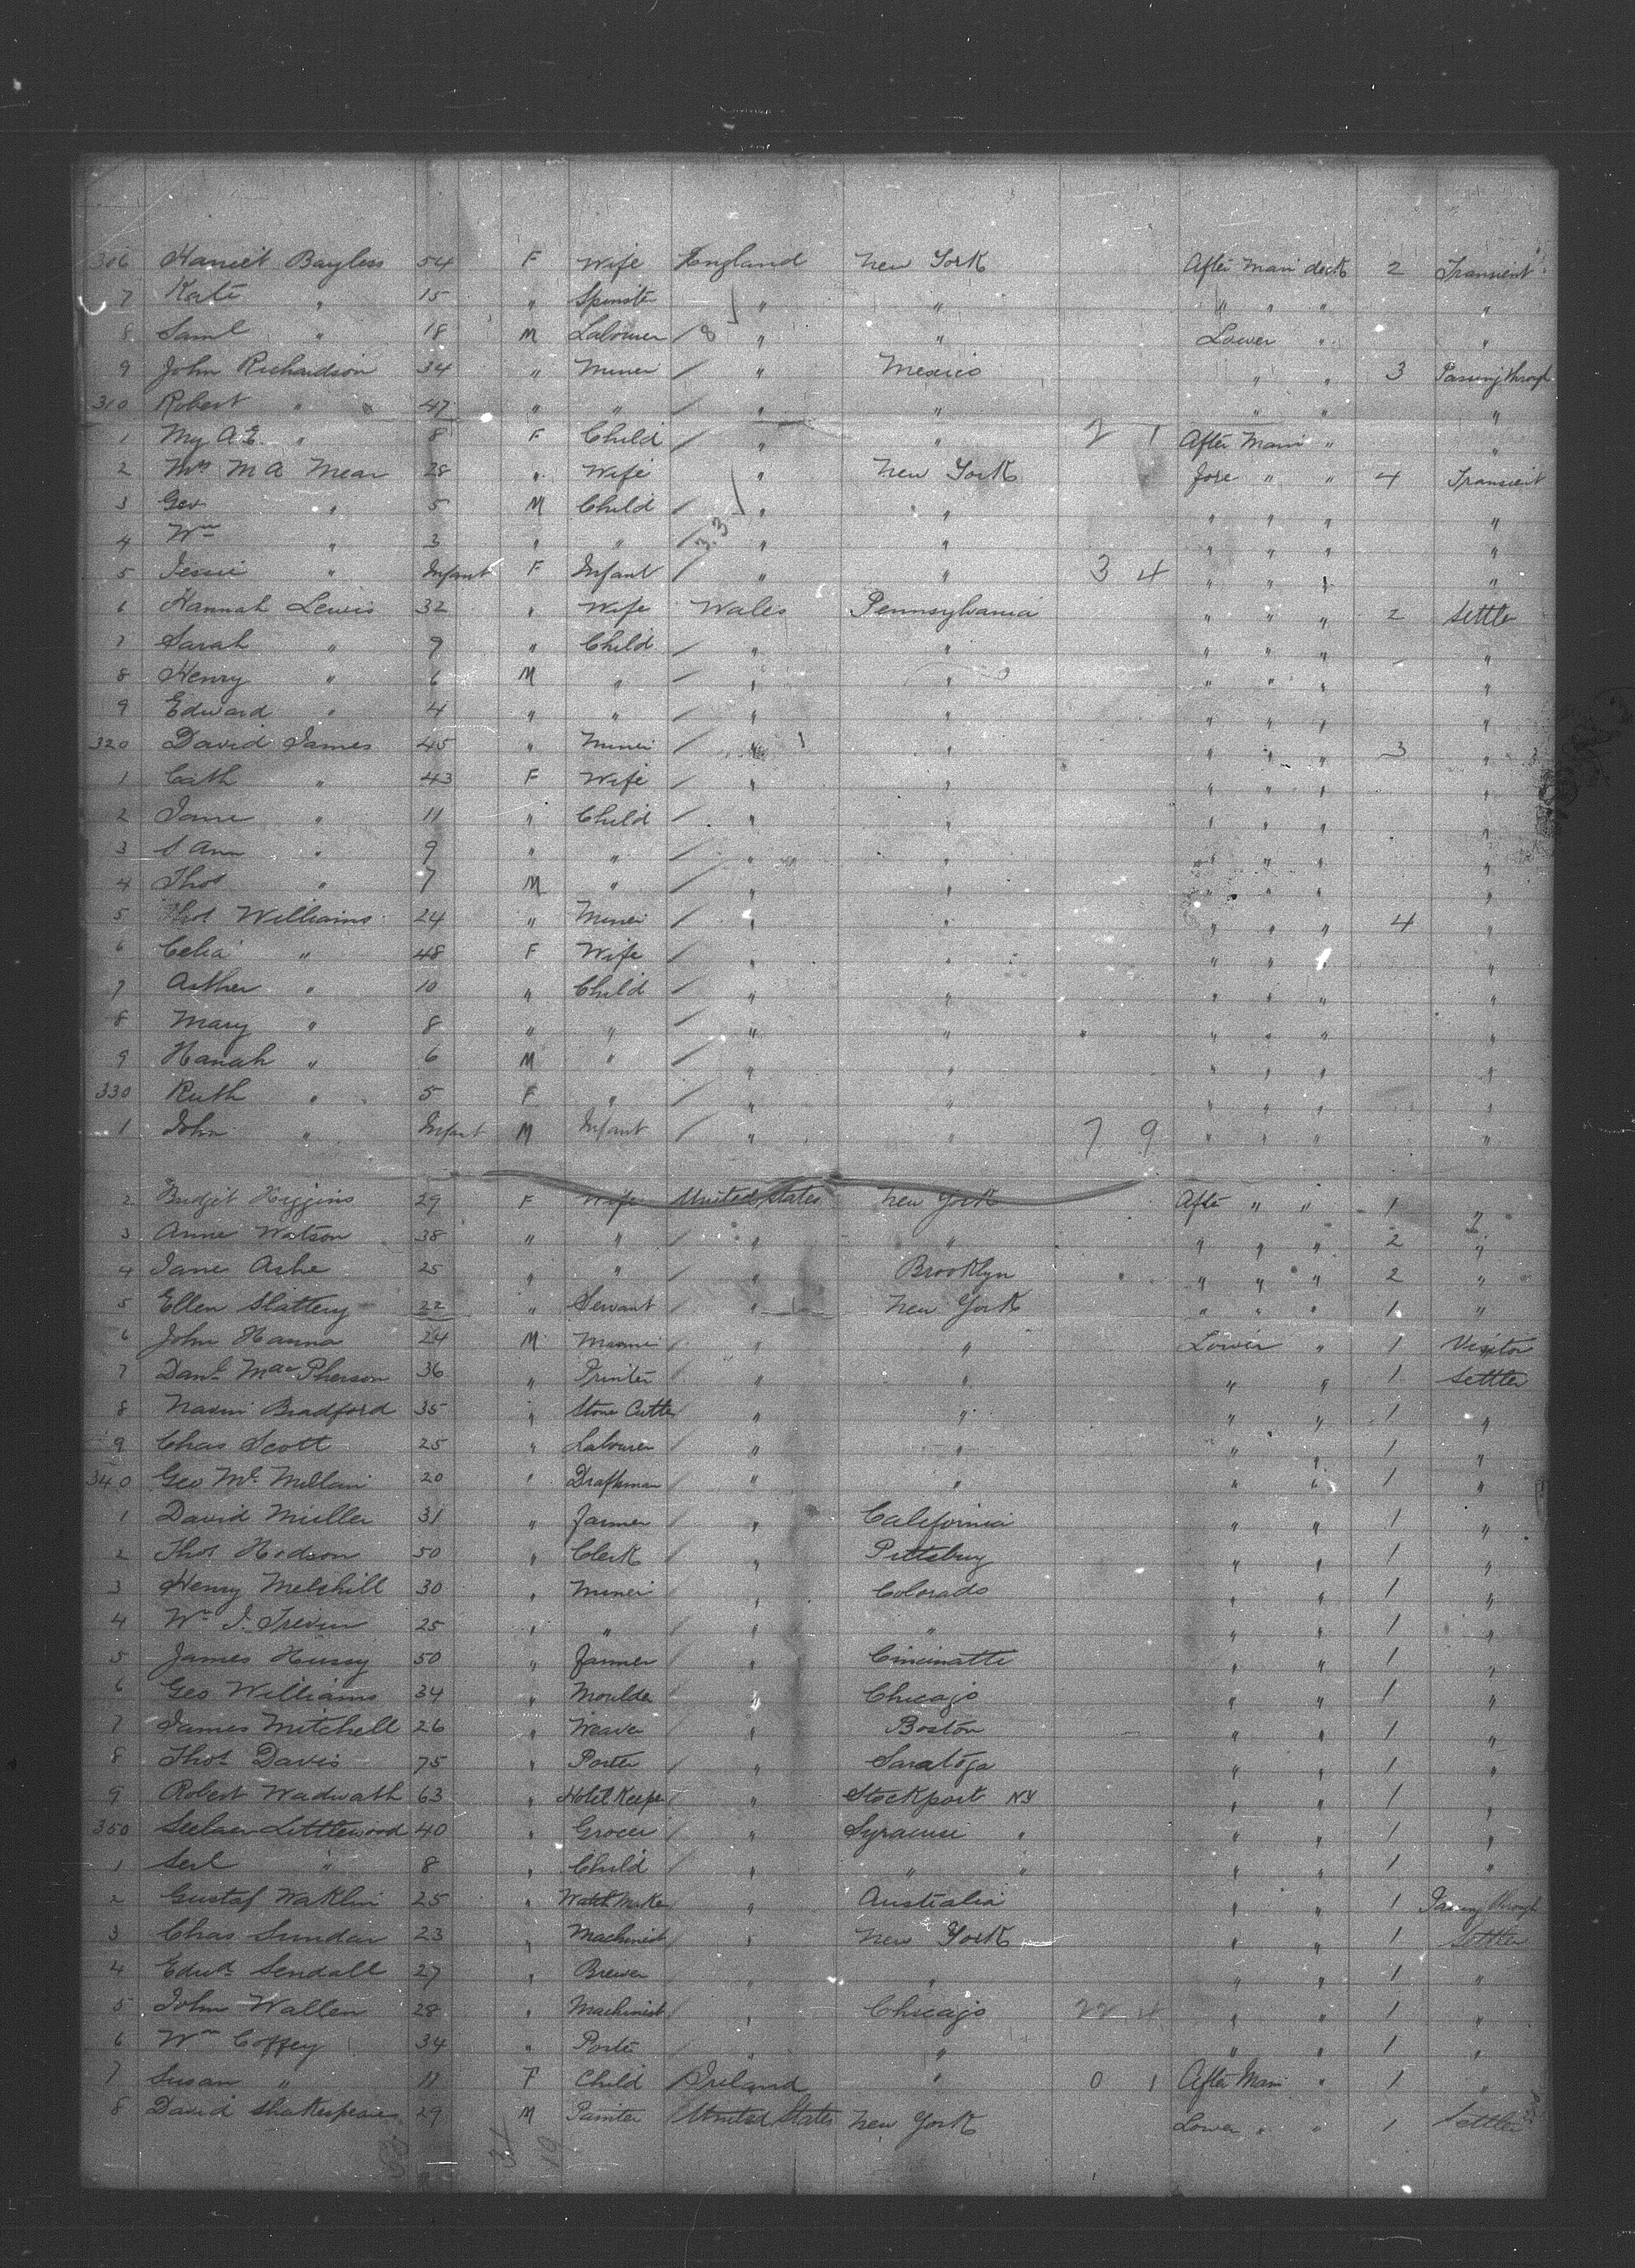 306 Harriet Bayless 54 F Wife England New York After Main deck 2 Transient
7 Kate " 15 " Spinster " " " " " "
8 Saml " 18 M Labourer / 8 " " Lower " "
9 John Richardson 34 " Miner / " Mexico " " 3 Passing through
310 Robert " 47 " " / " " " " "
1 My A.E. " 8 F Child / " " 2 1 After Main " "
2 Mrs M A Mear 28 " Wife " New York Fore " " 4 Transient
3 Geo " 5 M Child / " " " " " "
4 Wm " 3 " " / 33 " " " " " "
5 Jessie " Infant F Infant / " " 3 4 " " " "
6 Hannah Lewis 32 " Wife Wales Pennsylvania " " " 2 Settler
7 Sarah " 9 " Child / " " " " " "
8 Henry " 6 M " / " " " " " "
9 Edward " 4 " " / " " " " " "
320 David James 45 " Miner / " " " " " 3 "
1 Cath " 43 F Wife / " " " " " "
2 Jane " 11 " Child / " " " " " "
3 S Ann " 9 " " / " " " " " "
4 Thos " 7 M " / " " " " " "
5 Thos Williams 24 " Miner / " " " " " 4 "
6 Celia " 48 F Wife / " " " " " "
7 Arther " 10 " Child / " " " " " "
8 Mary " 8 " " / " " " " " "
9 Hanah " 6 M " / " " " " " "
330 Ruth " 5 F " / " " " " " "
1 John " Infant M Infant / " " 7 9 " " " "
2 Bridjit Higgins 29 F Wife United States New York After " " 1 "
3 Anne Watson 38 " " / " " " " " 2 "
4 Jane Ashe 25 " " / " Brooklyn " " " 2 "
5 Ellen Slattery 22 " Servant / " New York " " " 1 "
6 John Hanna 24 M " " Lower " 1 Visitor
7 Danl MacPherson 36 " Printer / " " " " 1 Settler
8 Bradford 35 " Stone Cutter / " " " " 1 "
9 Chas Scott 25 " Labourer / " " " " 1 "
340 Geo Mc Millan 20 " Draftsman " " " " 1 "
1 David Miller 31 " Farmer / " California " " 1 "
2 Thos Hodson 50 " Clerk / " Pittsburg " " 1 "
3 Henry Melshill 30 " Miner / " Colorado " " 1 "
4 Wm J. 25 " " / " " " " 1 "
5 James Hussy 50 " Farmer / " Cincinatti " " 1 "
6 Geo Williams 34 " Moulder " Chicago " " 1 "
7 James Mitchell 26 " Weaver / " Boston " " 1 "
8 Thos Davis 75 " Porter / " Saratoga " " 1 "
9 Robert Wadwath 63 " Hotel Keeper " Stockport NY " " 1 "
350 Littlewood 40 " Grocer / " Syracuse " " " 1 "
1 " 8 " Child / " " " " " 1 "
2 Gustaf Waklin 25 " Watch Maker " Australia " " 1 Passing through
3 Chas Sundar 23 " Machinist " New York " " 1 Settler
4 Edwd Sendall 27 " Brewer " " " " 1 "
5 John Wallen 28 " Machinist / " Chicago 22 4 " " 1 "
6 Wm Coffey 34 " Porter " " " " 1 "
7 Susan " 11 F Child / Ireland " 0 1 After Main " 1 "
8 David Shakespeare 29 M Painter / United States New York Lower " " 1 Settler